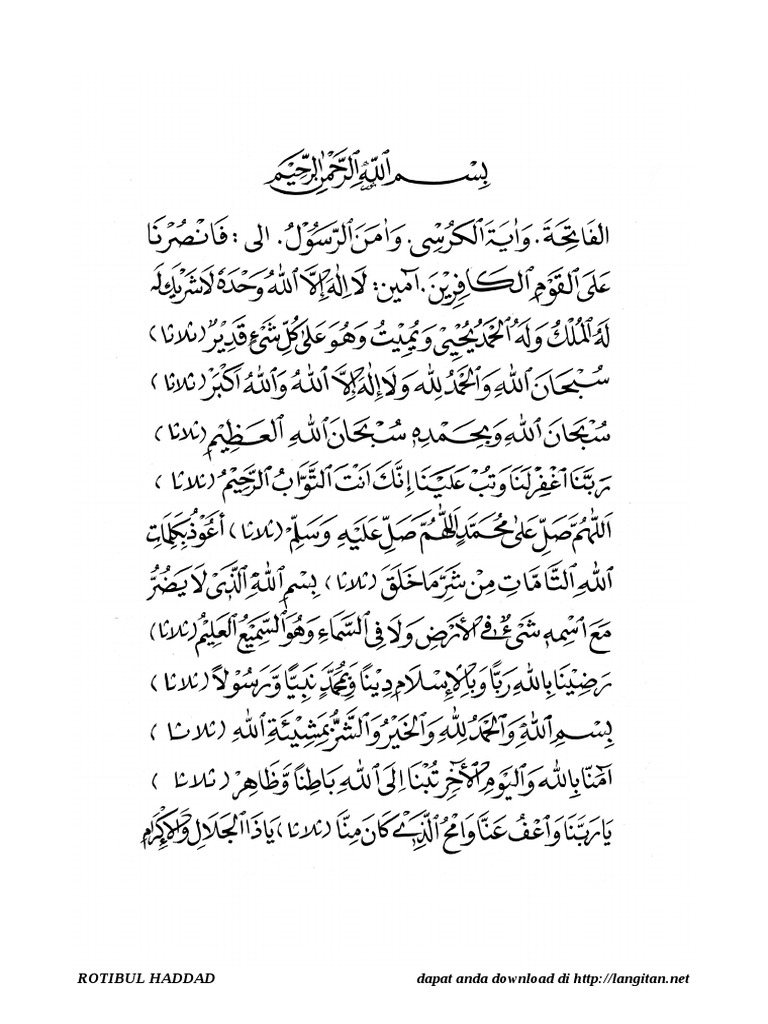 بِسْمِ اللّٰهِ الرَّحْمٰنِ الرَّحِيْمِ
الفَاتِحَةَ. وَاٰيَةَ الْكُرْسِى. وَاٰمَنَ الرَّسُوْلُ. الى : فَانْصُرْنَا
عَلَى الْقَوْمِ الْكَافِرِيْنَ. آمين : لَا اِلٰهَ اِلَّا اللّٰهُ وَحْدَهٗ لَاشَرِيْكَ لَهٗ
لَهُ الْمُلْكُ وَلَهُ الْحَمْدُ يُحْيِىْ وَيُمِيْتُ وَهُوَ عَلٰى كُلِّ شَىْءٍ قَدِيْرٌ (ثلاثا)
سُبْحَانَ اللّٰهِ وَالْحَمْدُ لِلّٰهِ وَلَا اِلٰهَ اِلَّا اللّٰهُ وَاللّٰهُ اَكْبَرُ (ثلاثا)
سُبْحَانَ اللّٰهِ وَبِحَمْدِهٖ سُبْحَانَ اللّٰهِ الْعَظِيْمِ (ثلاثا)
رَبَّنَا اغْفِرْلَنَا وَتُبْ عَلَيْنَا اِنَّكَ اَنْتَ التَّوَّابُ الرَّحِيْمُ (ثلاثا)
اَللّٰهُمَّ صَلِّ عَلٰى مُحَمَّدٍ اَللّٰهُمَّ صَلِّ عَلَيْهِ وَسَلِّمْ (ثلاثا) أَعُوْذُ بِكَلِمَاتِ
اللّٰهِ التَّامَّاتِ مِنْ شَرِّ مَا خَلَقَ (ثلاثا) بِسْمِ اللّٰهِ الَّذِىْ لَا يَضُرُّ
مَعَ اسْمِهٖ شَىْءٌ فِى الْاَرْضِ وَلَا فِى السَّمَاءِ وَهُوَ السَّمِيْعُ الْعَلِيْمُ (ثلاثا)
رَضِيْنَا بِاللّٰهِ رَبًّا وَبِالْاِسْلَامِ دِيْنًا وَبِمُحَمَّدٍ نَبِيًّا وَّرَسُوْلًا (ثلاثا)
بِسْمِ اللّٰهِ وَالْحَمْدُ لِلّٰهِ وَالْخَيْرُ وَالشَّرُّ بِمَشِيْئَةِ اللّٰهِ (ثلاثا)
اٰمَنَّا بِاللّٰهِ وَالْيَوْمِ الْاٰخِرِ تُبْنَا اِلَى اللّٰهِ بَاطِنًا وَّظَاهِرْ (ثلاثا)
يَارَبَّنَا وَاعْفُ عَنَّا وَامْحُ الَّذِىْ كَانَ مِنَّا (ثلاثا) يَاذَا الْجَلَالِ وَالْاِكْرَامِ
ROTIBUL HADDAD dapat anda download di http://langitan.net